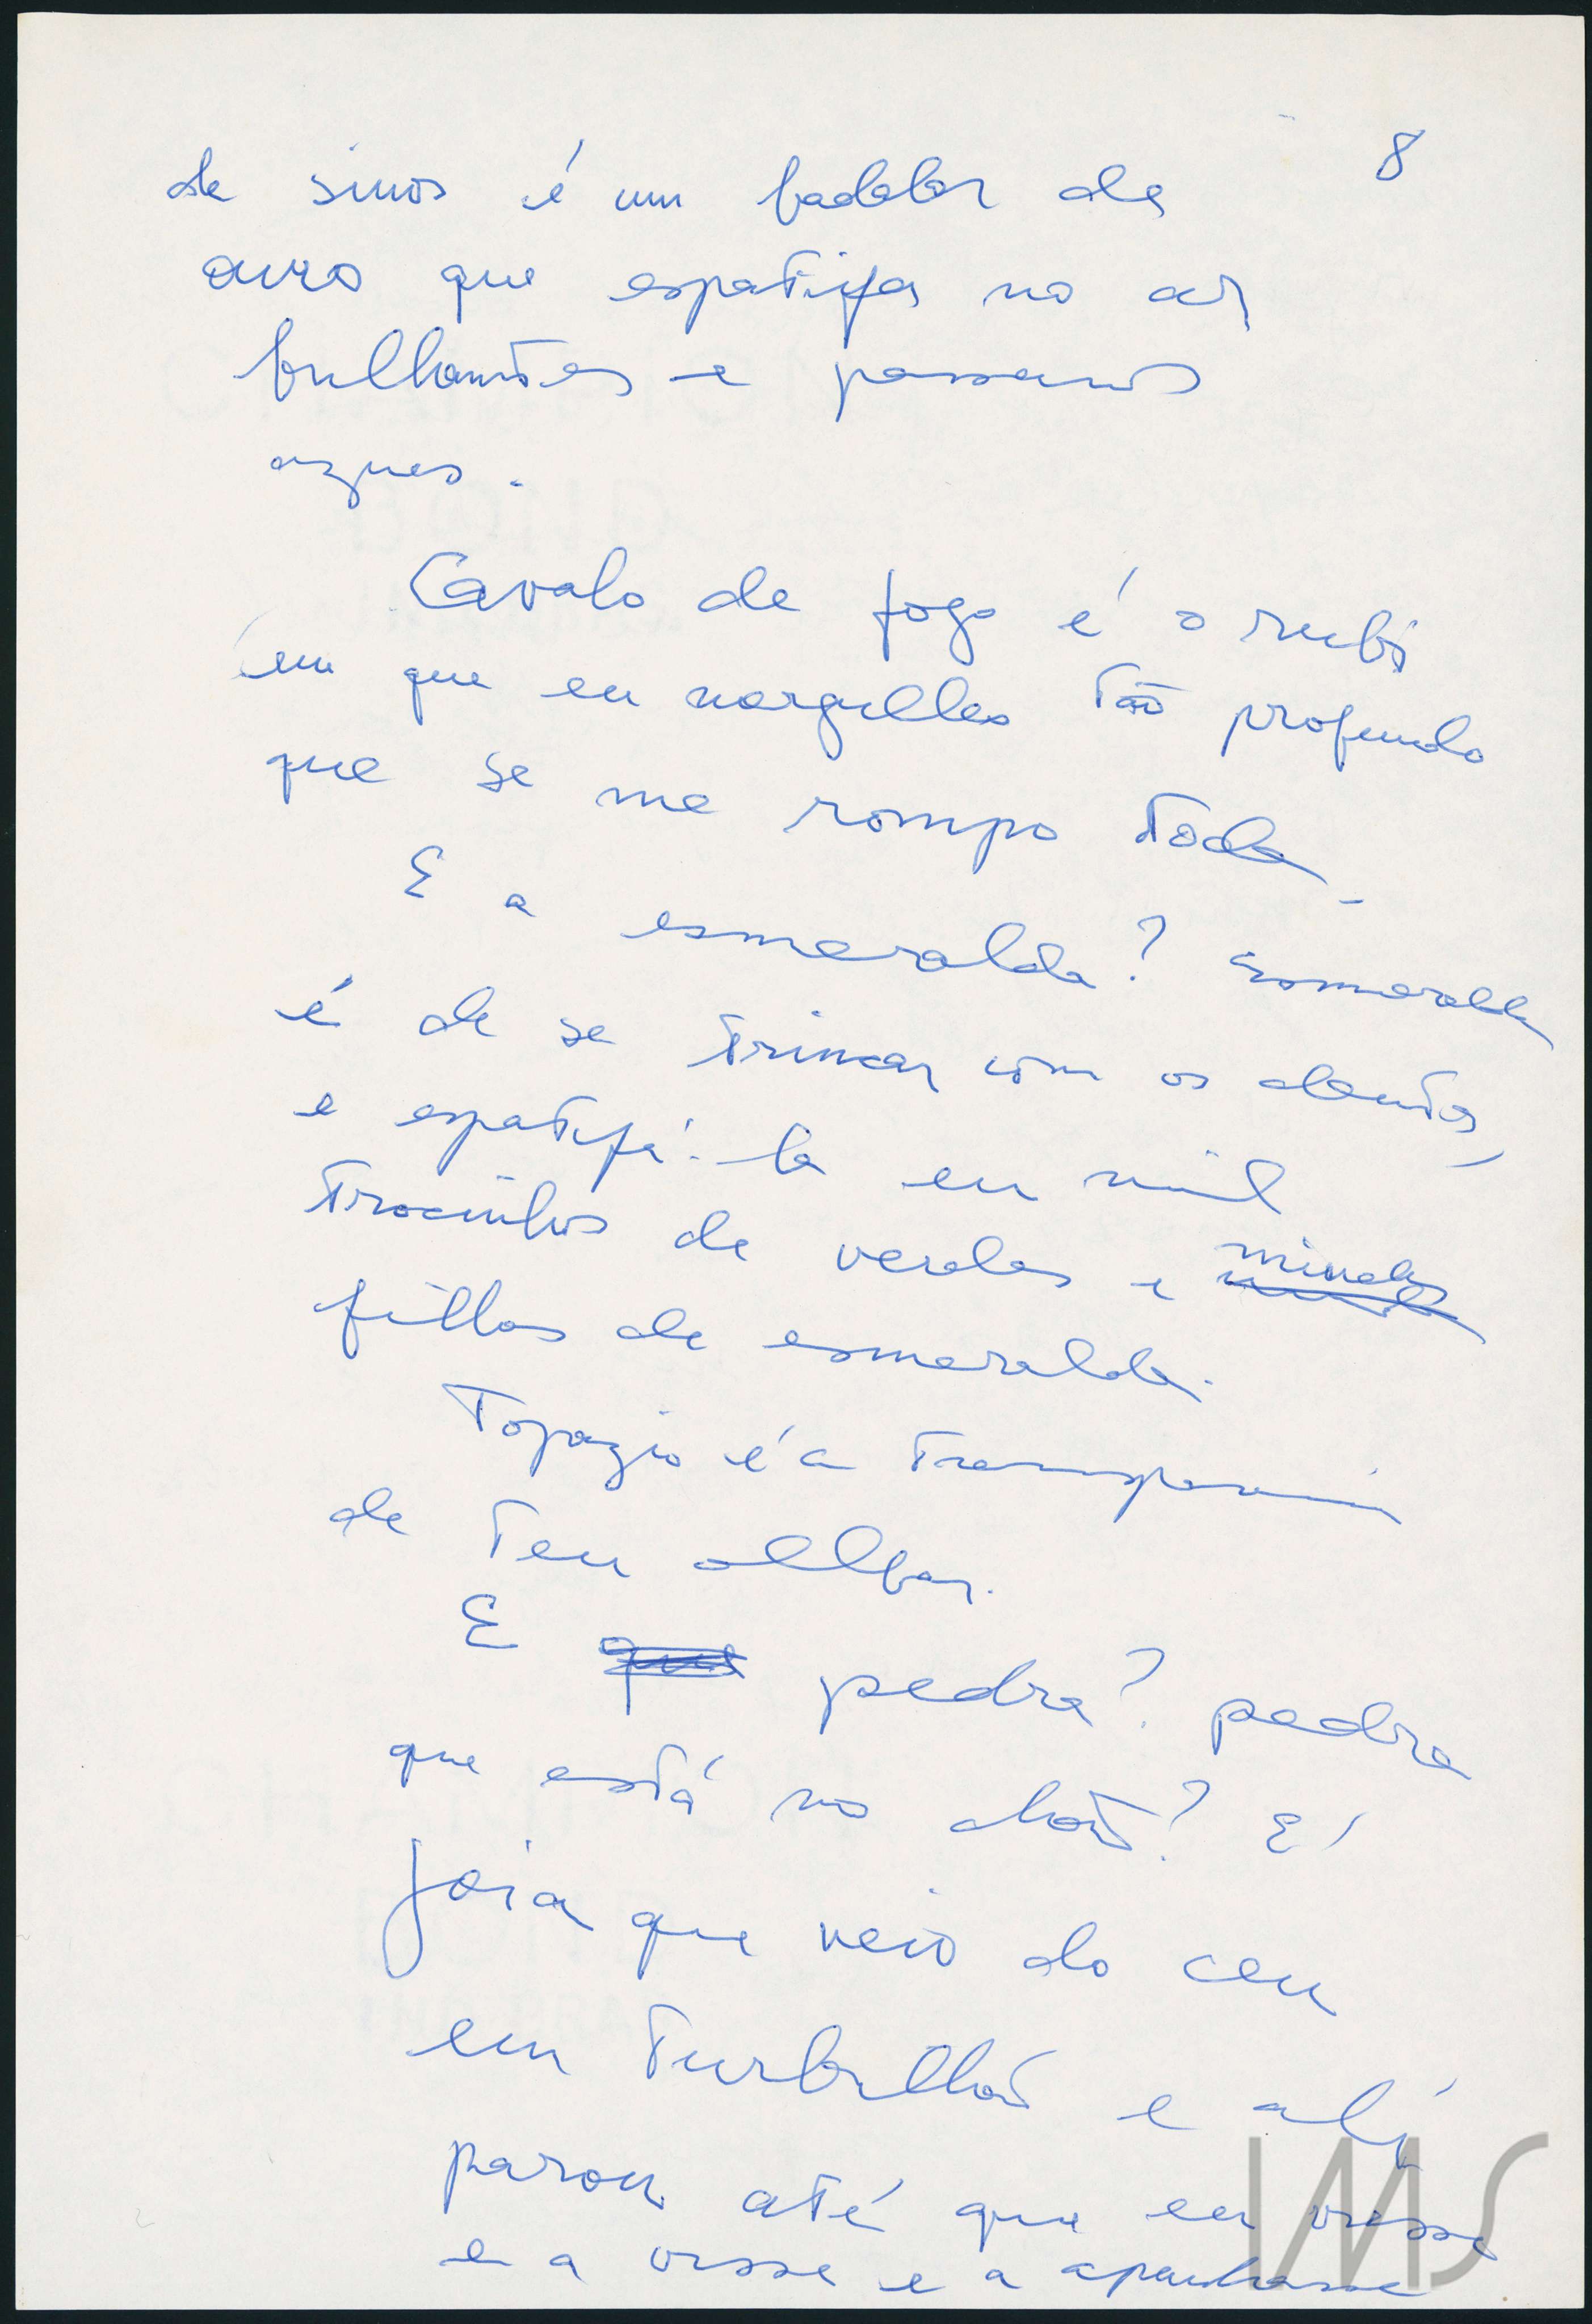 8
de sinos é um badalar de
ouro que espatifa no ar
brilhantes e passaros
azues.
Cavalo de fogo é o rubi
em que eu mergulho tão profundo
que se me rompo toda.
E a esmeralda? Esmeralda
é de se trincar com os dentes,
e espatifá-la em mil
trocinhos de verdes e miudas
filhas de esmeralda.
Topazio é a transparencia
de teu olhar.
E que pedra? pedra
que está no chão? É
joia que veio do ceu
em turbilhão e ali
parou até que eu viesse
e a visse e a apanhasse
IMS